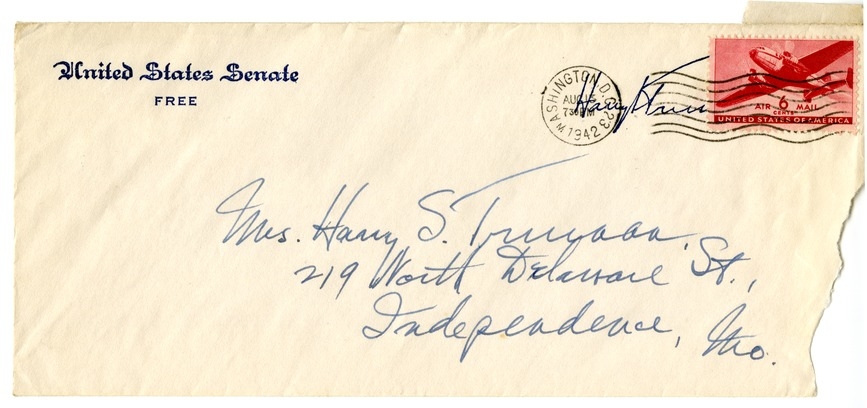 United States Senate
FREE
WASHINGTON, D.C. 23
AUG 15
7 30 PM
1942
Harry S Trum
AIR 6 MAIL
CENTS
UNITED STATES OF AMERICA
Mrs. Harry S. Truman,
219 North Delaware St.,
Independence, Mo.